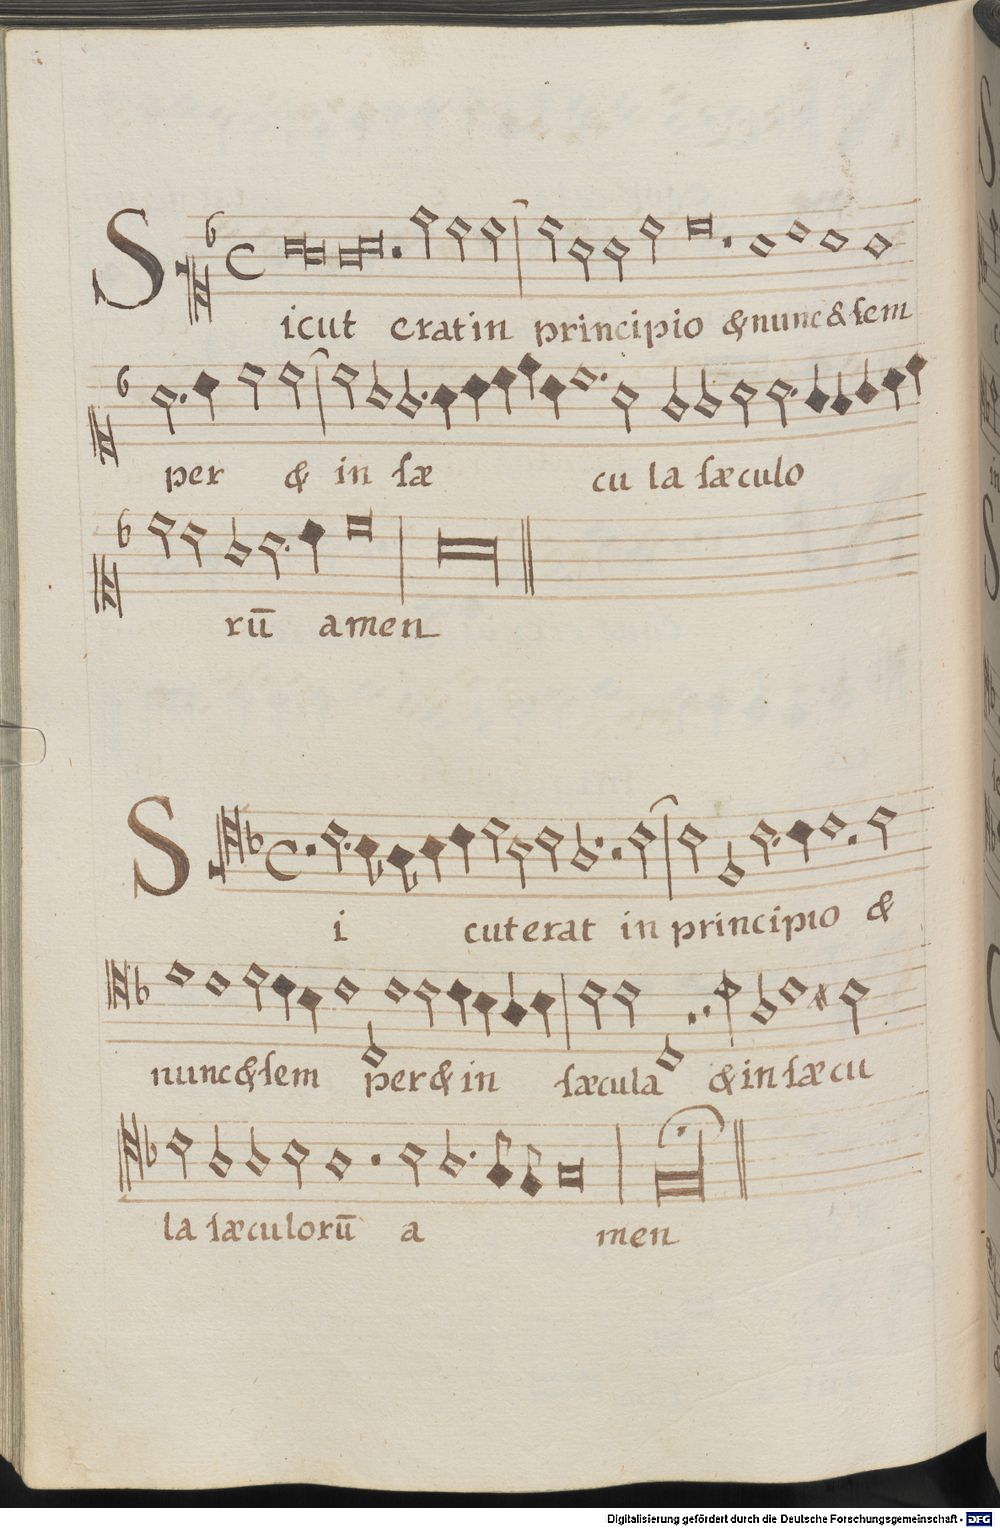 Sicut erat in principio & nunc & sem
per & in sæ cu la sæculo
rū amen
Si cut erat in principio &
nunc & sem per & in sæcula & in sæcu
la sæculorū a men
Digitalisierung gefördert durch die Deutsche Forschungsgemeinschaft - DFG